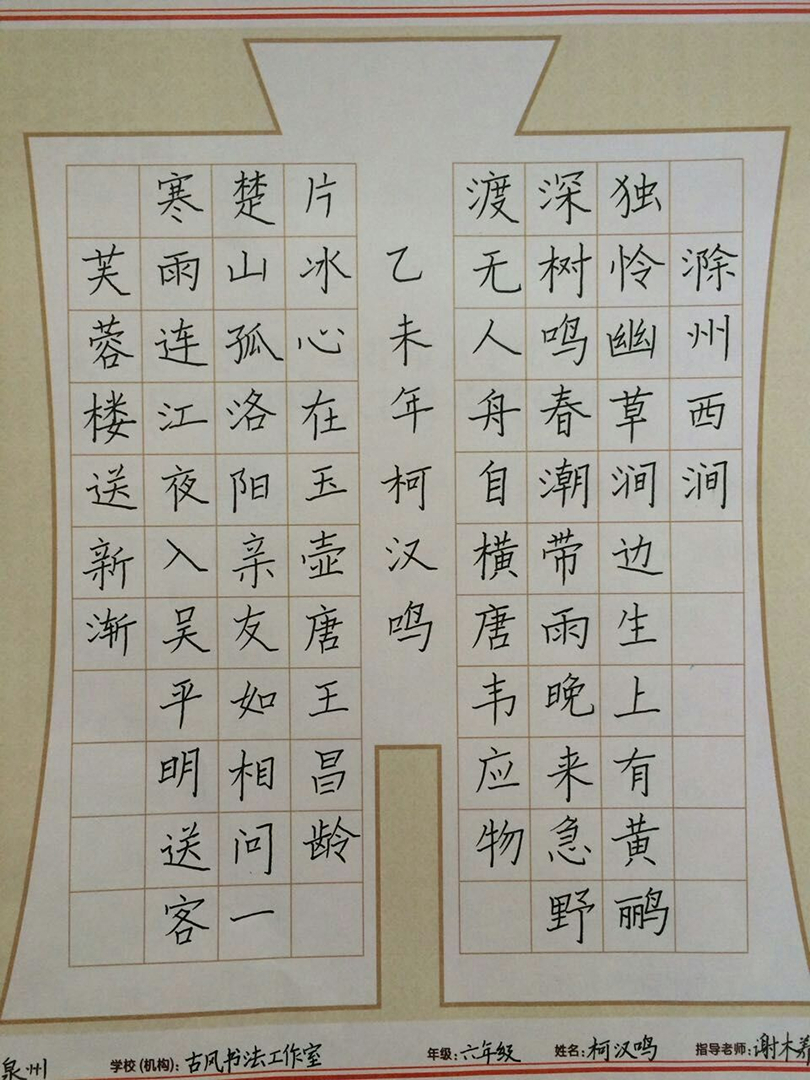 滁州西涧
独怜幽草涧边生上有黄鹂
深树鸣春潮带雨晚来急野
渡无人舟自横唐韦应物
芙蓉楼送新渐
寒雨连江夜入吴平明送客
楚山孤洛阳亲友如相问一
片冰心在玉壶唐王昌龄
乙未年柯汉鸣
泉州 学校(机构):古风书法工作室 年级:六年级 姓名:柯汉鸣 指导老师:谢木